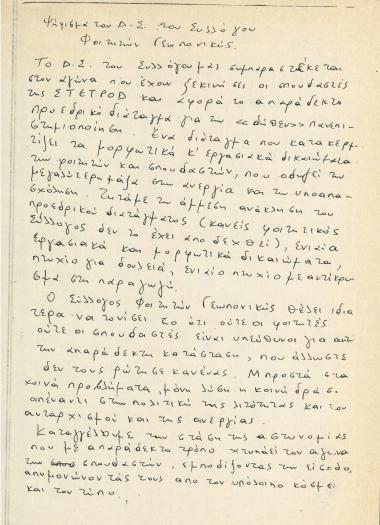 Ψήφισμα του Δ.Σ. του Συλλόγου
Φοιτητών Γεωπονικής.
Το Δ.Σ. του Συλλόγου μας συμπαραστέκεται
στον αγώνα που έχουν ξεκινήσει οι σπουδαστές
της ΣΤΕΤΡΟΔ και αφορά το απαράδεκτο
προεδρικό διάταγμα για την «δήθεν» πανεπι-
στημιοποίηση. Ένα διάταγμα που κατακερμ-
τίζει τα μορφωτικά κ' εργασιακά δικαιώματα
των φοιτητών και σπουδαστών, που οδηγεί την
μεγαλύτερη μάζα στην ανεργία και την υποαπα-
σχόληση. Ζητάμε τη άμμεση ανάκληση του
προεδρικού διατάγματος (κανείς φοιτητικός
Σύλλογος δεν το έχει αποδεχθεί), ενιαία
εργασιακά και μορφωτικά δικαιώματα,
πτυχίο για δουλειά, ενιαίο πτυχίο με αντίκρυ-
σμα στη παραγωγή.
Ο Σύλλογος Φοιτητών Γεωπονικής θέλει ιδια
τερα να τονίσει το ότι ούτε οι φοιτητές
ούτε οι σπουδαστές είναι υπεύθυνοι για αυτή
την απαράδεκτη κατάσταση, που άλλωστε
δεν τους ρώτησε κανένας. Μπροστά στα
κοινά προβλήματα, μόνη λύση η κοινή δράση
απέναντι στην πολιτική της λιτότητας και του
αυταρχισμού και της ανεργίας.
Καταγγέλουμε την στάση της αστυνομίας
που με απαράδεκτο τρόπο χτυπάει τον αγώνα
των σπουδαστών, εμποδίζοντας την είσοδο,
απομονώνοντάς τους απο τον υπόλοιπο κόσμο
και τον τύπο.